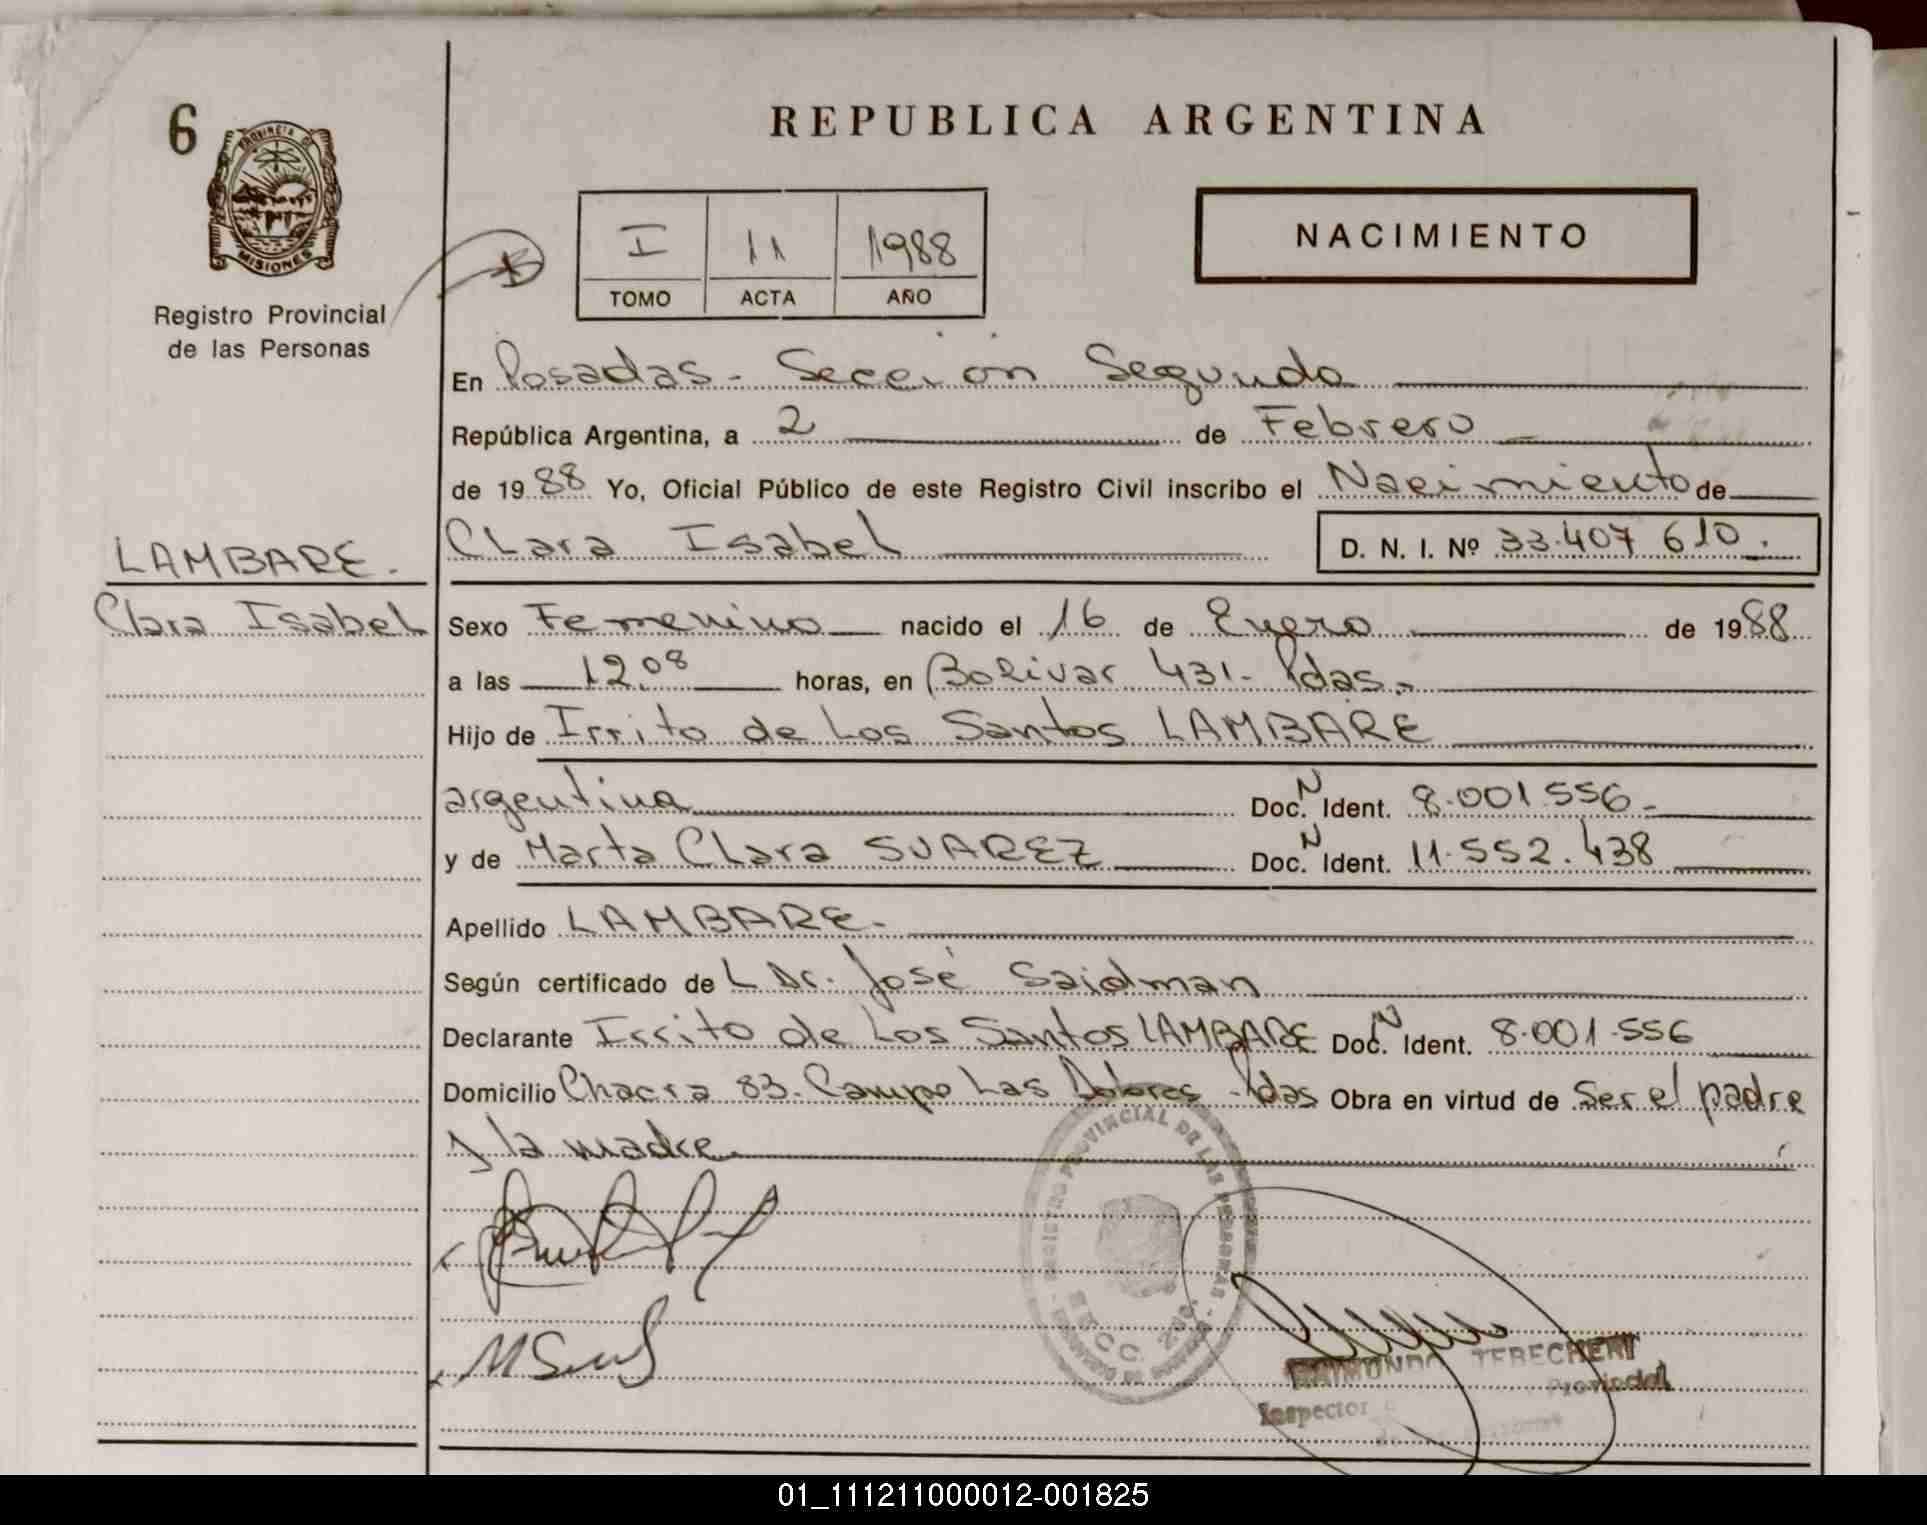 6
PROVINCIA DE
MISIONES
Registro Provincial
de las Personas
REPUBLICA ARGENTINA
I 11 1988
TOMO ACTA AÑO
NACIMIENTO
En Posadas - Sección Segunda
República Argentina, a 2 de Febrero
de 1988 Yo, Oficial Público de este Registro Civil inscribo el Nacimiento de
Clara Isabel D. N. I. Nº 33.407 610.
LAMBARE.
Clara Isabel
Sexo Femenino nacido el 16 de Enero de 1988
a las 12,08 horas, en Bolivar 431- Pdas.-
Hijo de Irrito de Los Santos LAMBARE
argentina Doc. N Ident. 8.001.556-
y de Marta Clara SUAREZ Doc. N Ident. 11.552.438
Apellido LAMBARE-
Según certificado de L Dr. José Saidman
Declarante Irrito de Los Santos LAMBARE Doc. N Ident. 8.001.556
Domicilio Chacra 83. Campo Las Dolores - Pdas Obra en virtud de Ser el padre
y la madre
REGISTRO PROVINCIAL DE LAS PERSONAS
SECC. 2da.
RAIMUNDO TERECHEN
Inspector Provincial
01_111211000012-001825